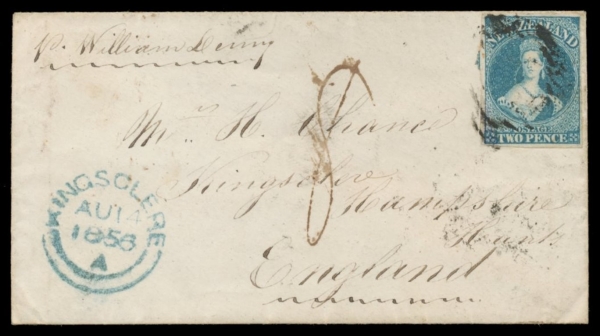 pr. William Denny
NEW ZEALAND
POSTAGE
TWO PENCE
8
Mrs. H. Chance
Kingsclere
Hampshire
Hants
England
KINGSCLERE
AU 14
1856
A